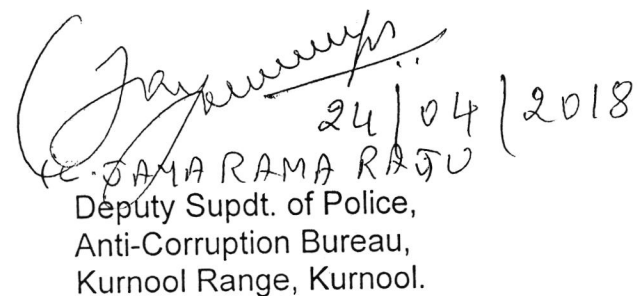 24/04/2018
K. JAYA RAMA RAJU
Deputy Supdt. of Police,
Anti-Corruption Bureau,
Kurnool Range, Kurnool.